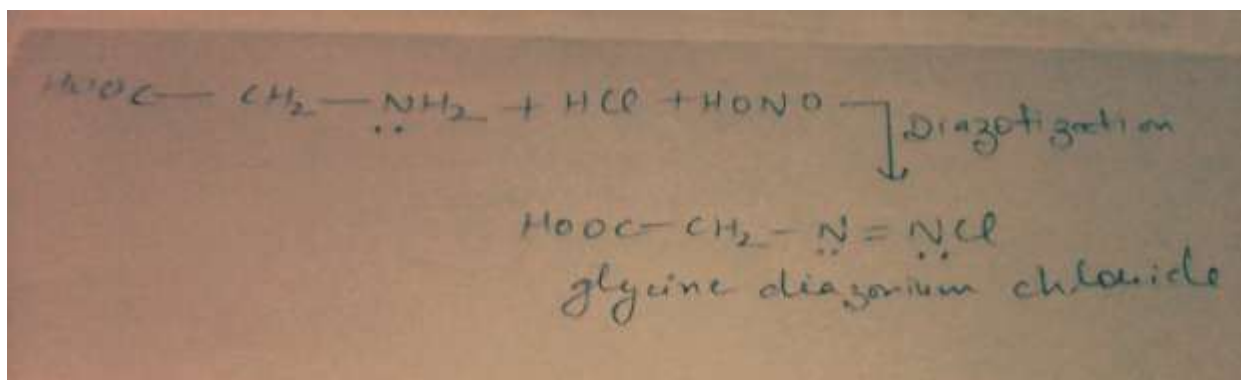 HOOC — CH₂ — NH₂ + HCl + HONO
Diazotization
HOOC — CH₂ — N = NCl
glycine diazonium chloride